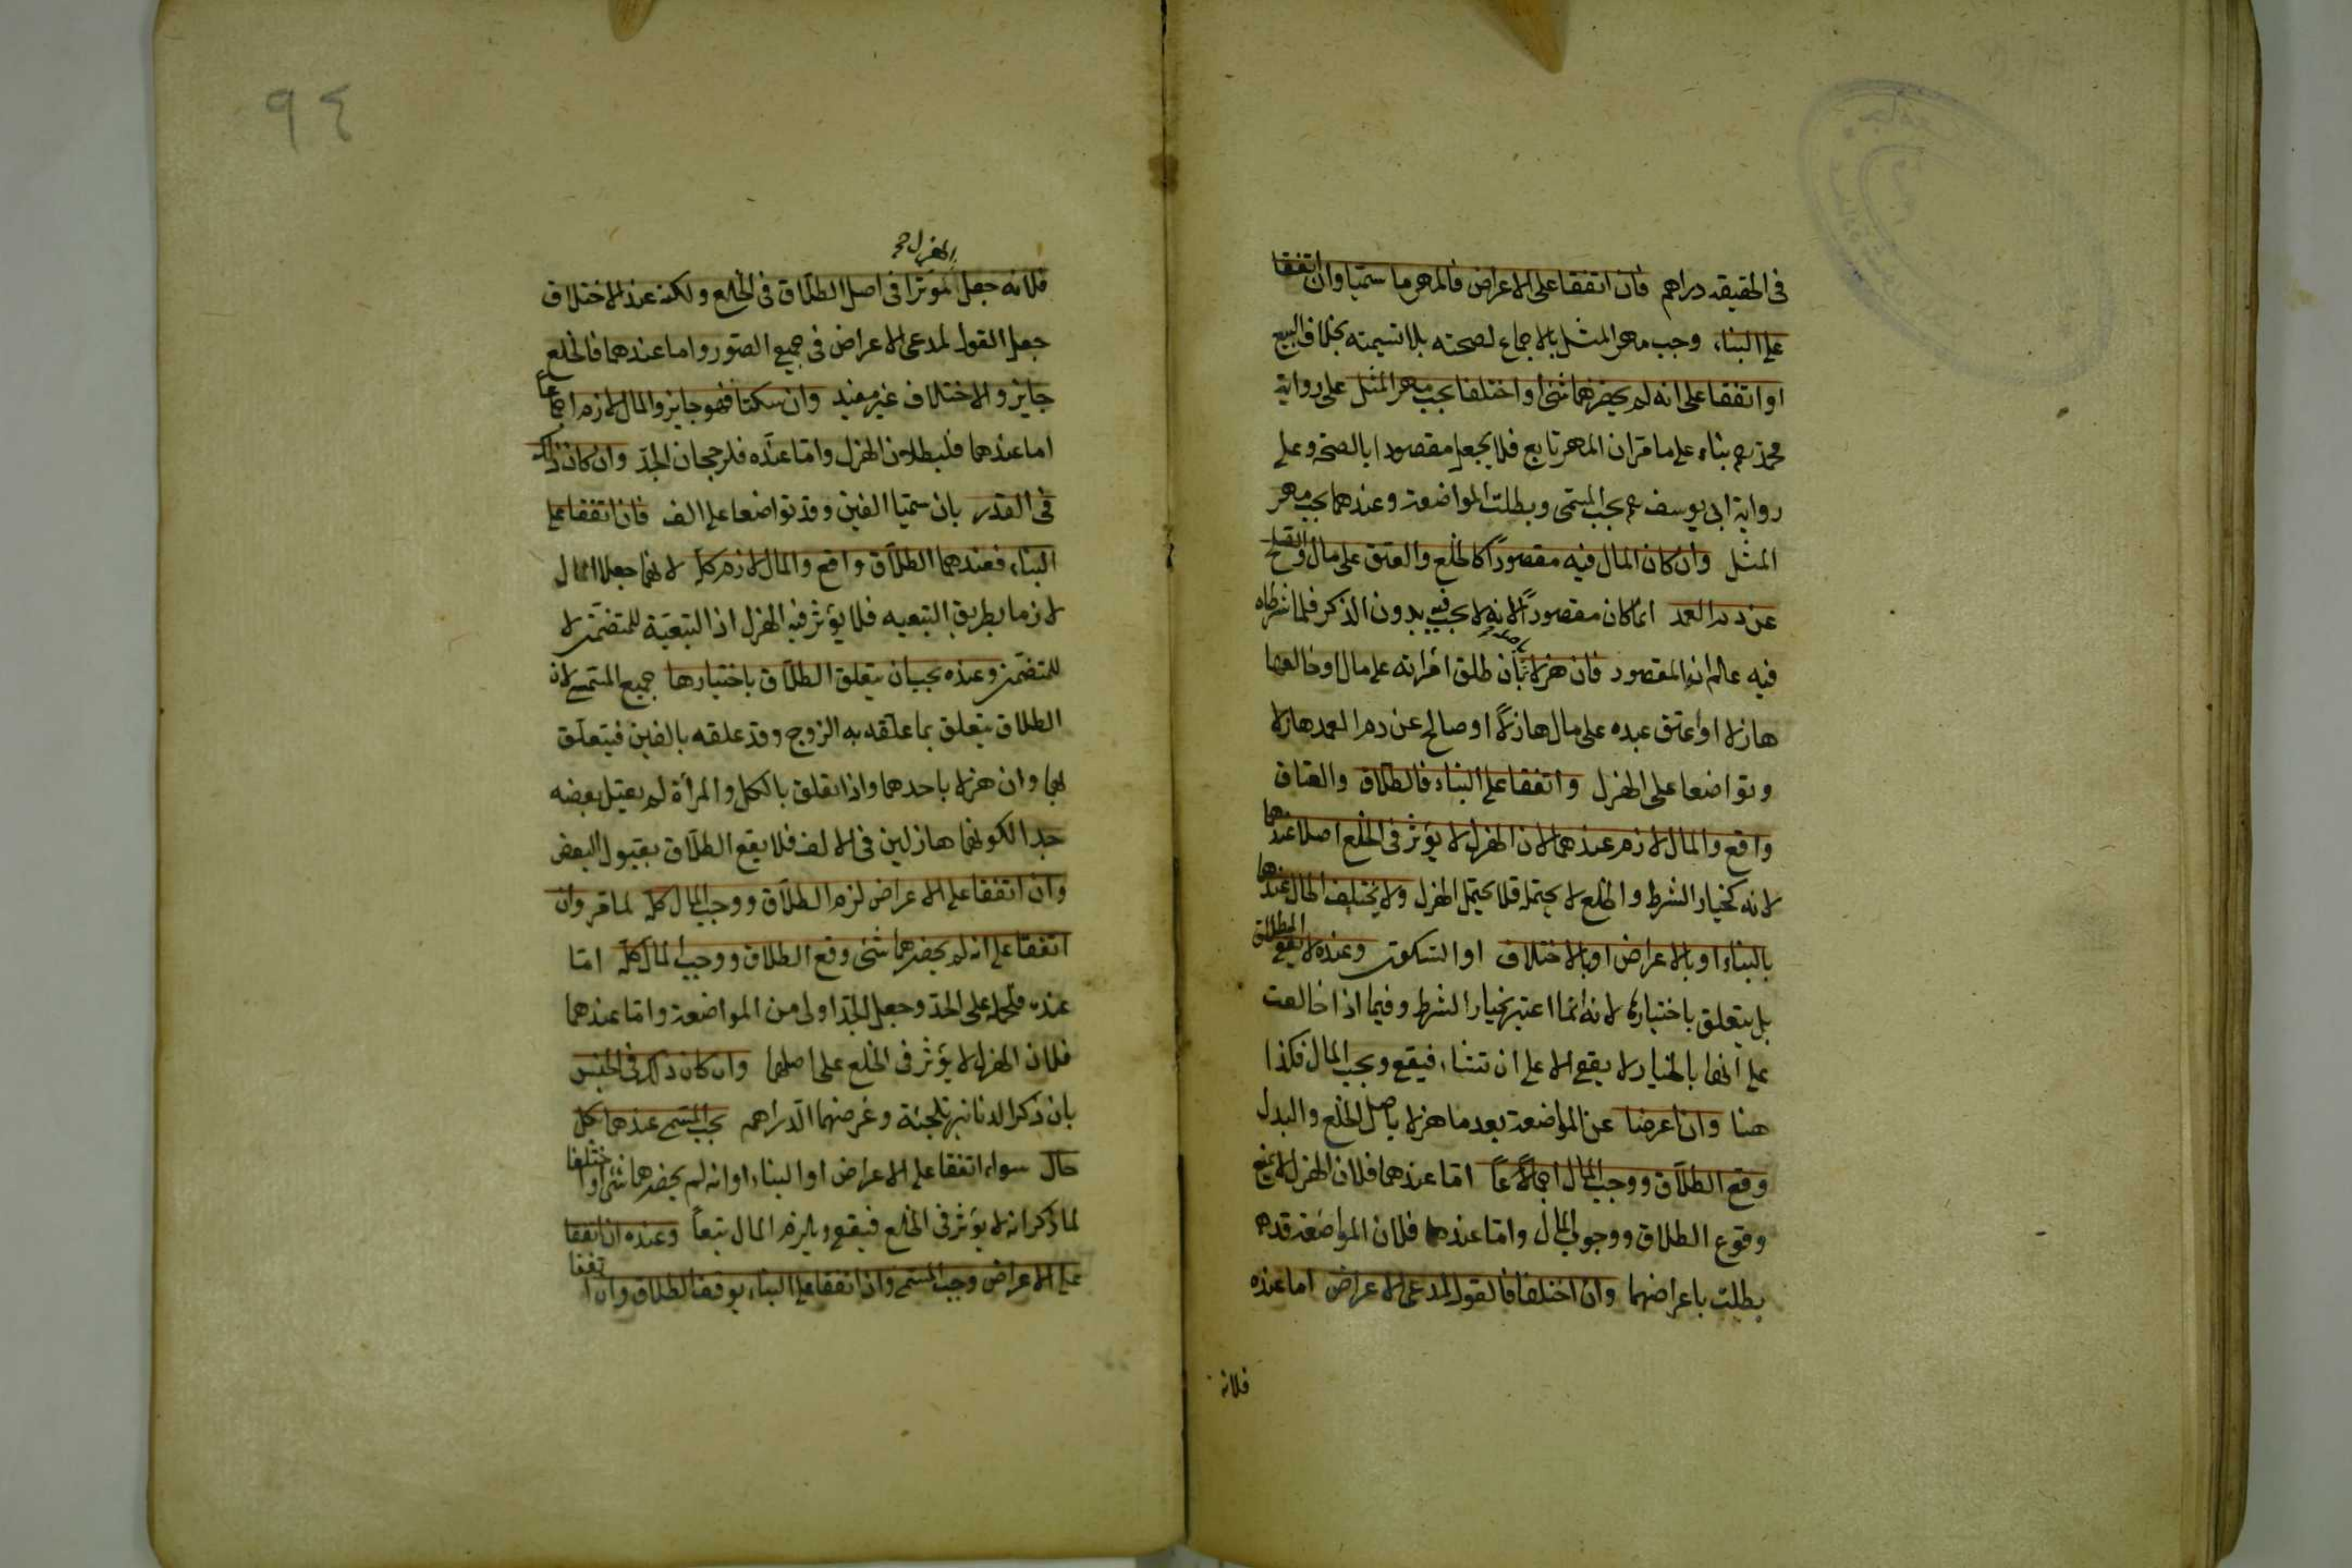 في الحقيقه دراهم فان اتفقا على الاعراض فالمهر ما سميا وان اتفقا
على البناء وجب مهر المثل بالاجماع لصحته بلا تسيمته بخلاف البيع
او اتفقا على انه لم يحضرهما شئ او اختلفا يجب مهر المثل على رواية
محمد رحم بناء على ما مر ان المهر تابع فلا يجعل مقصودا بالصحة وعلى
رواية ابي يوسف رحم يجب المسمى وبطلت المواضعة وعندهما يجب مهر
المثل وان كان المال فيه مقصوداً كالخلع والعتق على مال والصلح
عن دم العمد انما كان مقصوداً لانه لا يجب فيه بدون الذكر فلما شرطاه
فيه علم انه المقصود فان هزلا باصله بان طلق امراته على مال او خالعها
هازلا او اعتق عبده على مال هازلاً او صالح عن دم العمد هازلا
وتواضعا على الهزل واتفقا على البناء فالطلاق والعتاق
واقع والمال لازم عندهما لان الهزل لا يؤثر في الخلع اصلا عندهما
لانه كخيار الشرط والخلع لا يحتمله فلا يحتمل الهزل ولا يختلف الحال عندهما
بالبناء او بالاعراض او بالاختلاف او السكوت وعنده لا يقع الطلاق
بل يتعلق باختيارها لانه انما اعتبر بخيار الشرط وفيما اذا خالعت
على انها بالخيار لا يقع الا على ان تشاء فيقع ويجب المال فكذا
هنا وان اعرضا عن المواضعة بعد ما هزلا باصل الخلع والبدل
وقع الطلاق ووجب المال اجماعاً اما عندهما فلان الهزل لا يمنع
وقوع الطلاق ووجوب المال واما عنده فلان المواضعة قد
بطلت باعراضهما وان اختلفا فالقول لمدعى الاعراض اما عنده
فلانه
٩٤
الهزل صح
فلانه جعل مؤثرا في اصل الطلاق في الخلع ولكنه عند الاختلاف
جعل القول لمدعى الاعراض في جميع الصور واما عندهما فالخلع
جايز والاختلاف غير مفيد وان سكتا فهو جايز والمال لازم اجماعاً
اما عندهما فلبطلان الهزل واما عنده فلرجحان الجدّ وان كان ذلك
في القدر بان سميا الفين وقد تواضعا على الف فان اتفقا على
البناء فعندهما الطلاق واقع والمال لازم كله لانهما جعلا المال
لازما بطريق التبعيه فلا يؤثر فيه الهزل اذ التبعيّة للمتضمّن لا
للمتضمّن وعنده يجب ان يتعلق الطلاق باختيارها جميع المسمى لان
الطلاق يتعلق بما علّقه به الزوج وقد علقه بالفين فيتعلق
بهما وان هزلا باحدهما واذا تعلق بالكل والمرأة لم تقبل بعضه
جدا لكونهما هازلين في الالف فلا يقع الطلاق بقبول البعض
وان اتفقا على الاعراض لزم الطلاق ووجب المال كله لما مر وان
اتفقا على انه لم يحضرهما شئ وقع الطلاق ووجب المال كله امّا
عنده فلحمله على الجدّ وجعل الجدّ اولى من المواضعة واما عندهما
فلان الهزل لا يؤثر في الخلع على اصلهما وان كان ذلك في الجنس
بان ذكرا لدنانير تلجئة وغرضهما الدراهم يجب المسمى عندهما بكل
حال سواء اتفقا على الاعراض او البناء او انه لم يحضرهما شئ او اختلفا
لما ذكر انه لا يؤثر في الخلع فيقع ويلزم المال تبعاً وعنده ان اتفقا
على الاعراض وجب المسمى واذا اتفقا على البناء يوقف الطلاق وان اتفقا